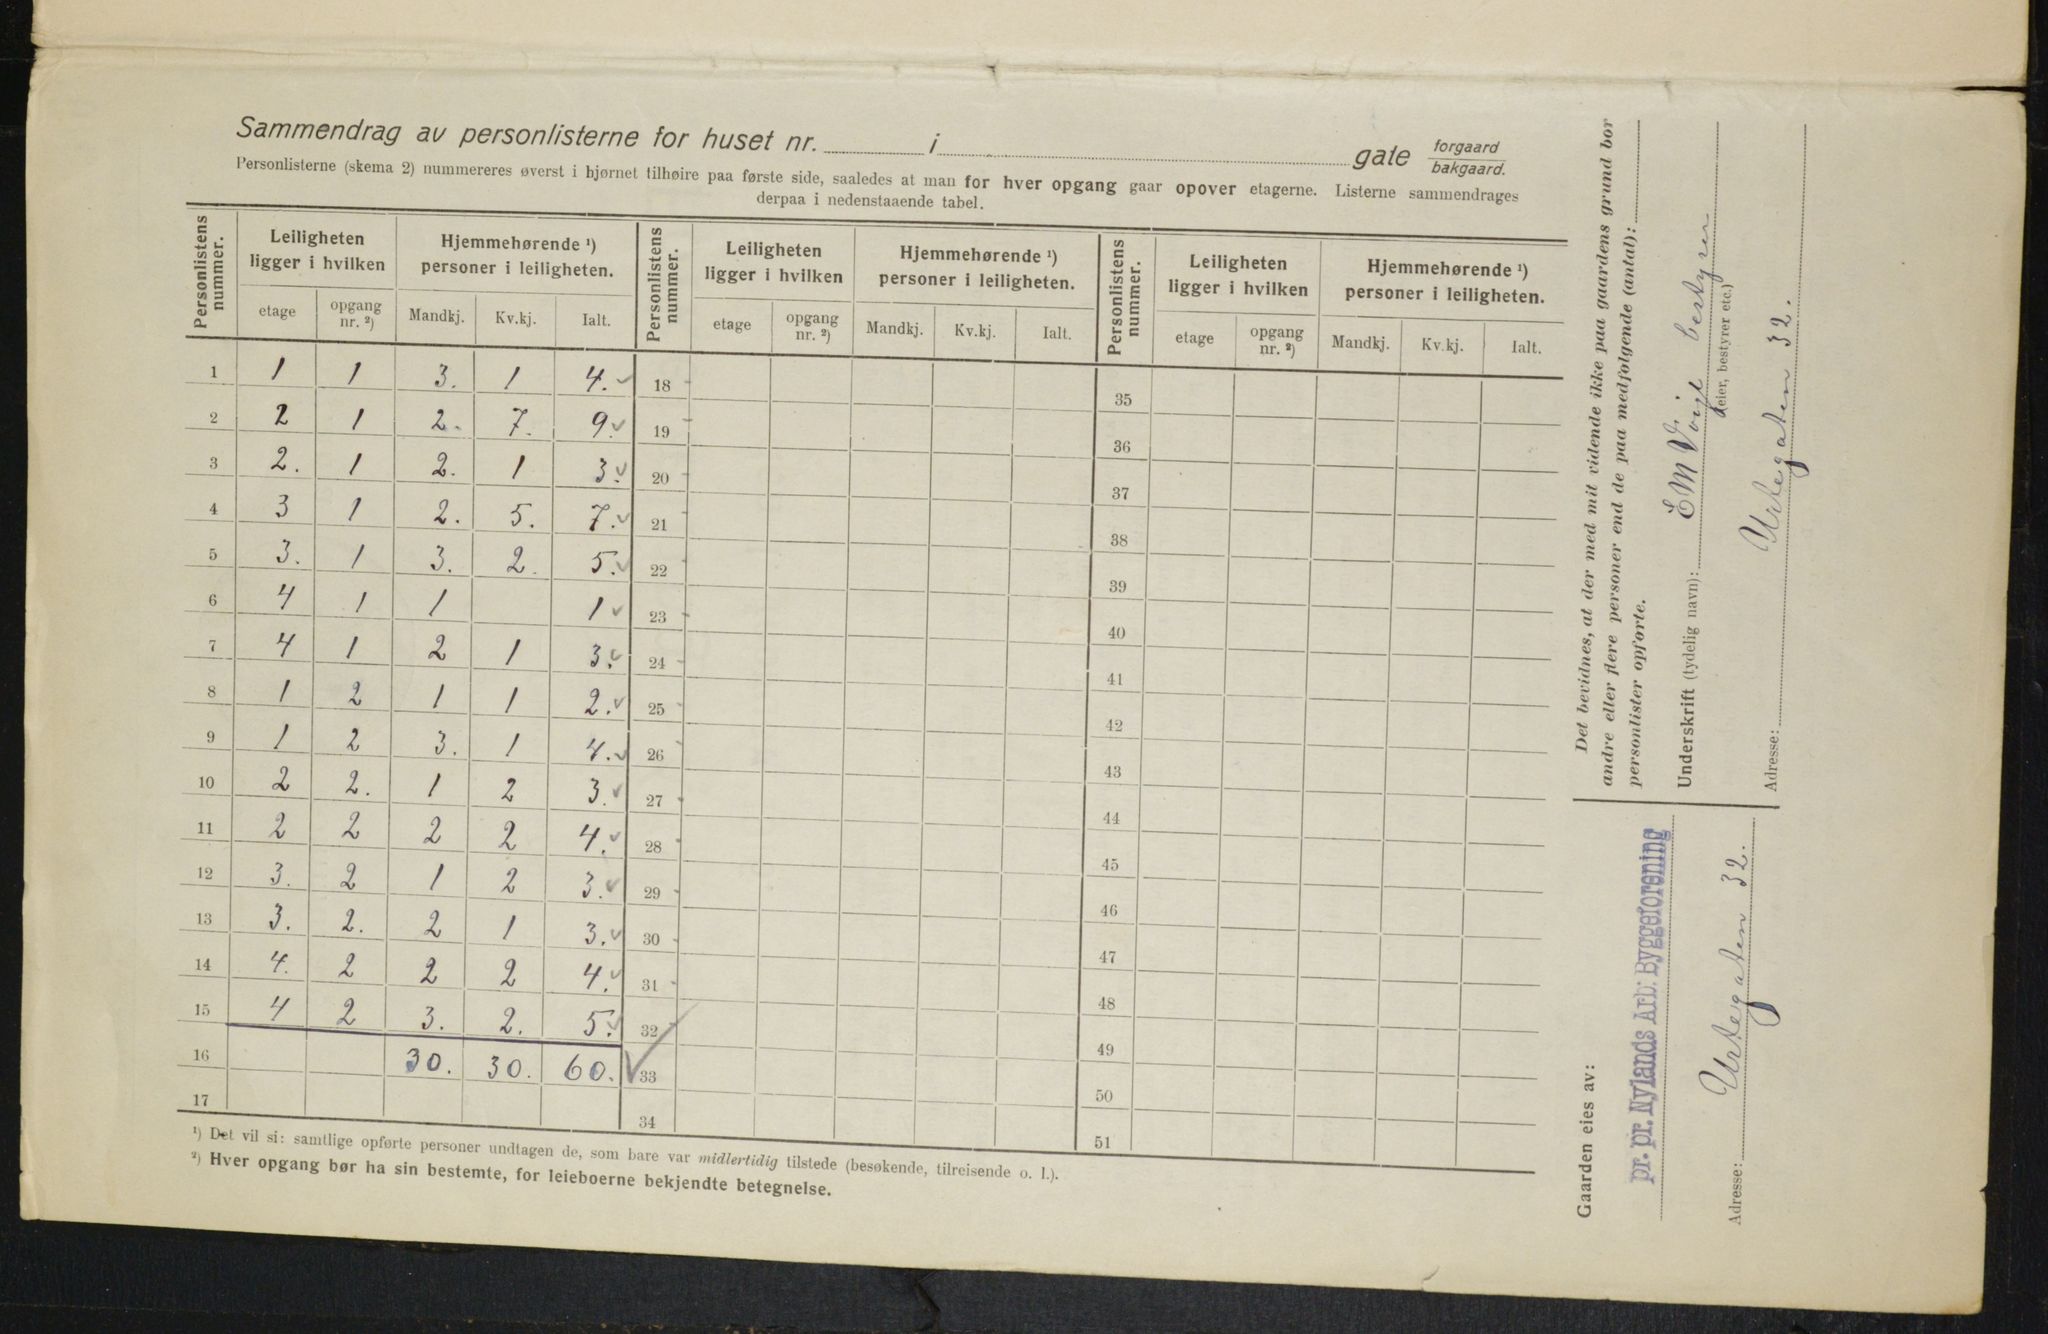 Sammendrag av personlisterne for huset nr. i gate forgaard bakgaard.
Personlisterne (skema 2) nummereres øverst i hjørnet tilhøire paa første side, saaledes at man for hver opgang gaar opover etagerne. Listerne sammendrages
derpaa i nedenstaaende tabel.
Personlistens nummer. Leiligheten ligger i hvilken Hjemmehørende ¹) personer i leiligheten. Personlistens nummer. Leiligheten ligger i hvilken Hjemmehørende ¹) personer i leiligheten. Personlistens nummer. Leiligheten ligger i hvilken Hjemmehørende ¹) personer i leiligheten.
etage opgang nr. ²) Mandkj. Kv.kj. Ialt. etage opgang nr. ²) Mandkj. Kv.kj. Ialt. etage opgang nr. ²) Mandkj. Kv.kj. Ialt.
1 1 1 3. 1 4. 18 35
2 2 1 2. 7. 9. 19 36
3 2. 1 2. 1 3. 20 37
4 3 1 2. 5. 7. 21 38
5 3. 1 3. 2. 5. 22 39
6 4 1 1 1 23 40
7 4 1 2 1 3. 24 41
8 1 2 1 1 2. 25 42
9 1 2 3. 1 4. 26 43
10 2 2. 1 2 3. 27 44
11 2 2 2 2 4. 28 45
12 3. 2 1 2 3. 29 46
13 3. 2. 2 1 3. 30 47
14 4. 2 2 2 4. 31 48
15 4 2 3. 2. 5. 32 49
16 30. 30. 60. 33 50
17 34 51
¹) Det vil si: samtlige opførte personer undtagen de, som bare var midlertidig tilstede (besøkende, tilreisende o. l.).
²) Hver opgang bør ha sin bestemte, for leieboerne bekjendte betegnelse.
Det bevidnes, at der med mit vidende ikke paa gaardens grund bor
andre eller flere personer end de paa medfølgende (antal):
personlister opførte.
Underskrift (tydelig navn): E M Voigt bestyrer
(eier, bestyrer etc.)
Adresse: Urtegaten 32.
Gaarden eies av:
pr. pr. Nylands Arb: Byggeforening
Adresse: Urtegaten 32.